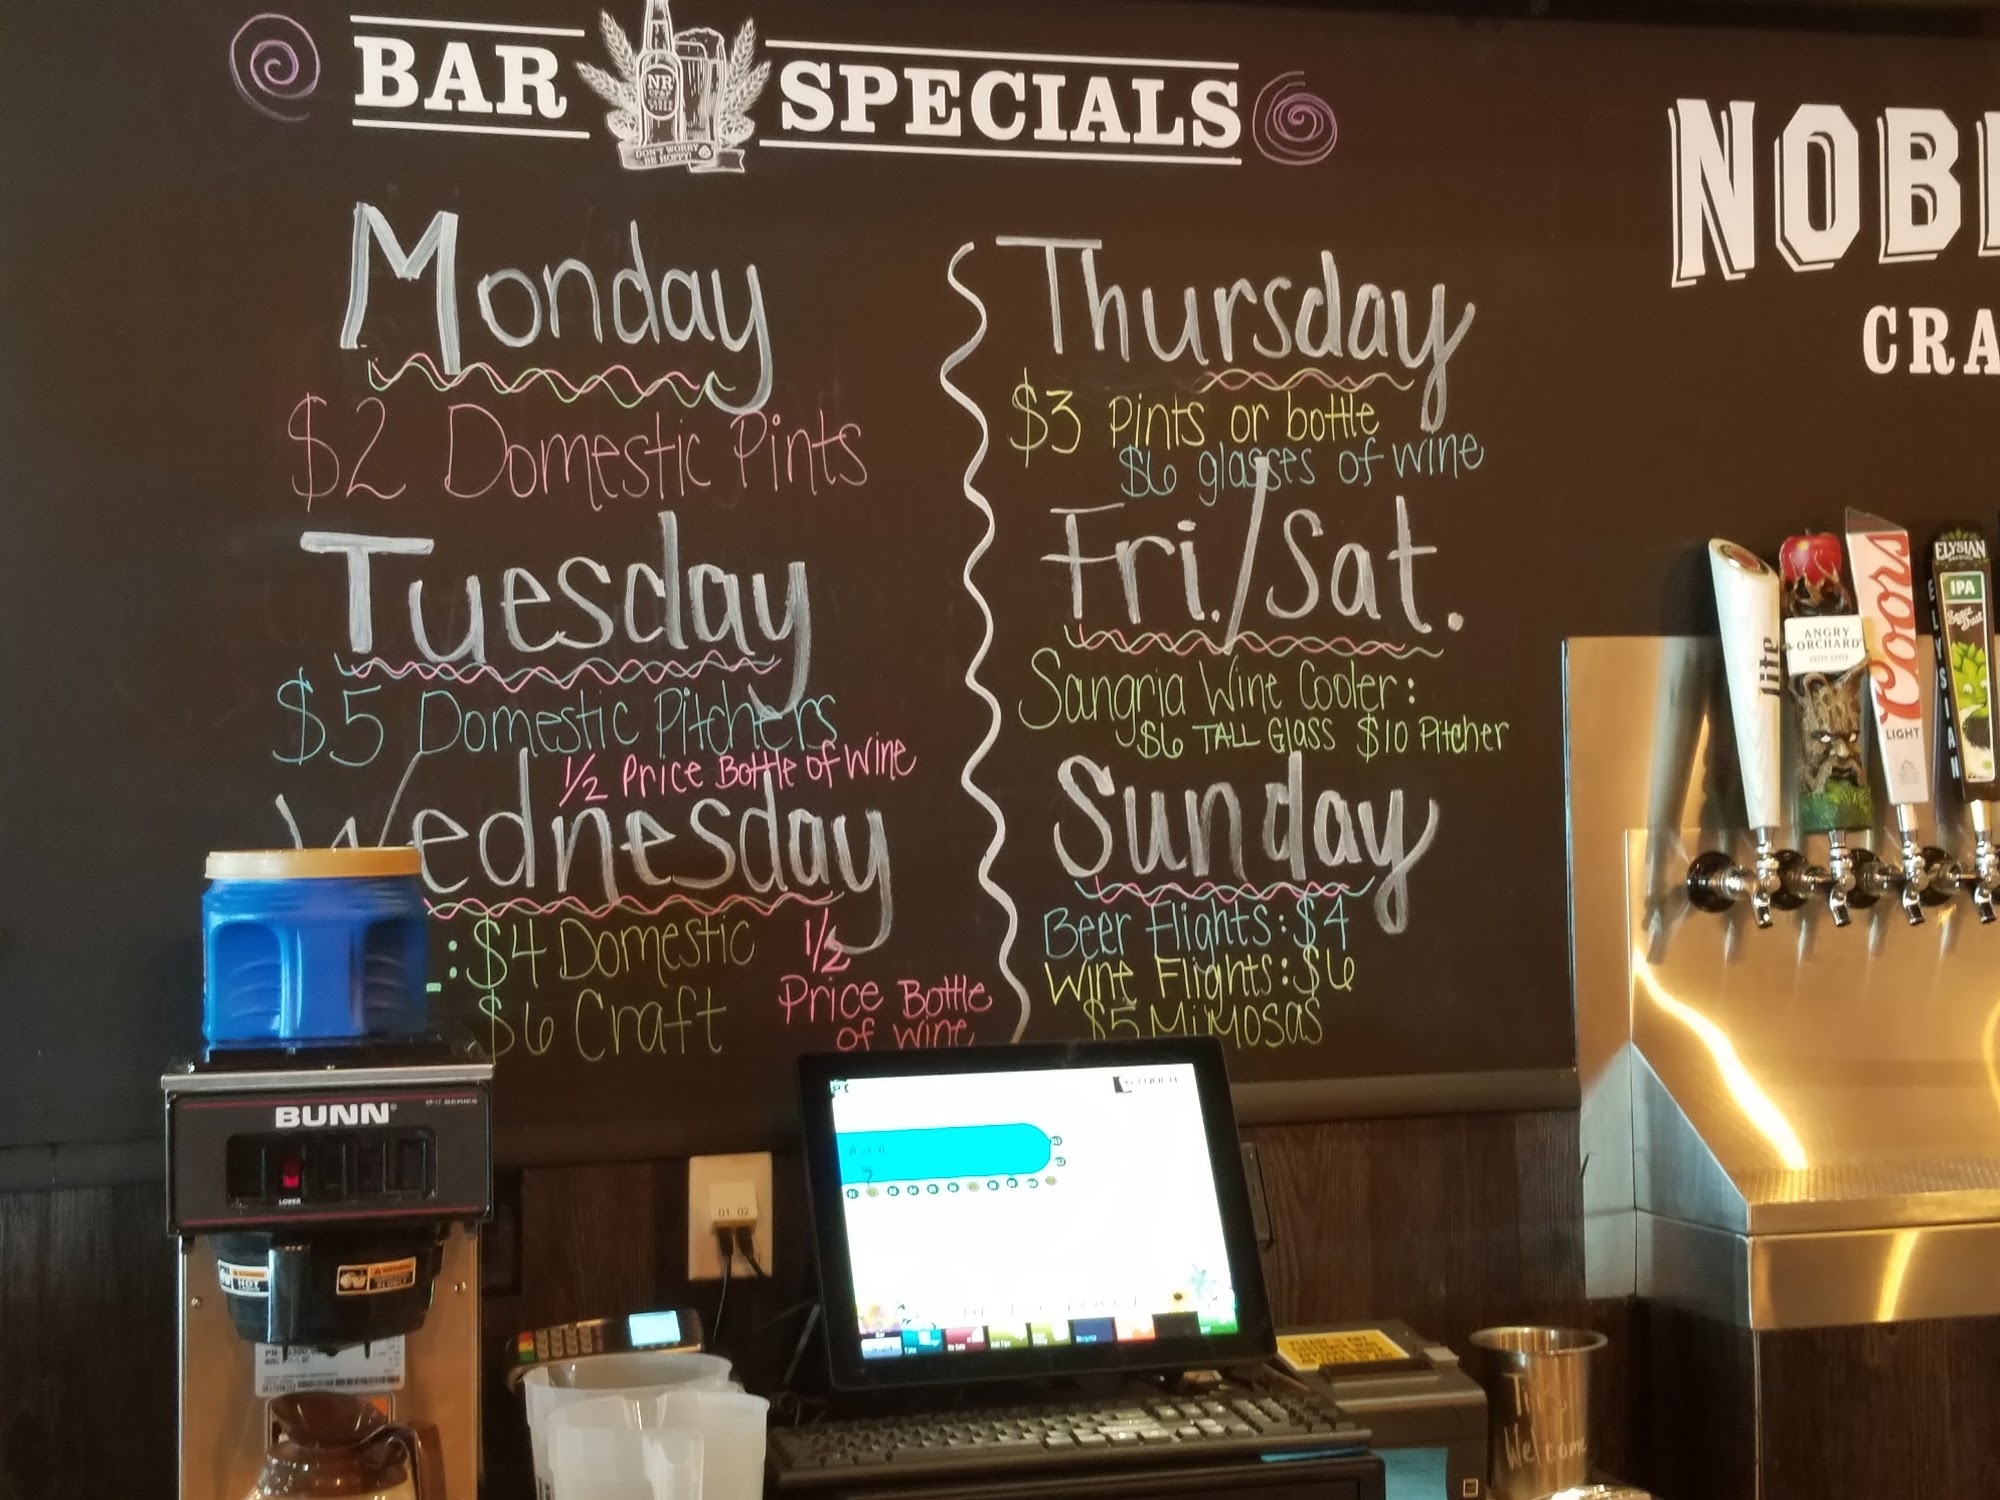 BAR SPECIALS
NR
DON'T WORRY
BE HOPPY!
Monday
$2 Domestic Pints
Tuesday
$5 Domestic Pitchers
1/2 Price Bottle of Wine
Wednesday
: $4 Domestic
$6 Craft
1/2
Price Bottle
of wine
Thursday
$3 Pints or bottle
$6 glasses of wine
Fri./Sat.
Sangria Wine Cooler:
$6 TALL Glass $10 Pitcher
Sunday
Beer Flights: $4
Wine Flights: $6
$5 Mimosas
NOB
CRA
lite
ANGRY
ORCHARD
Coors
LIGHT
ELYSIAN
IPA
Space Dust
BUNN
LOWER
01 02
Welcome